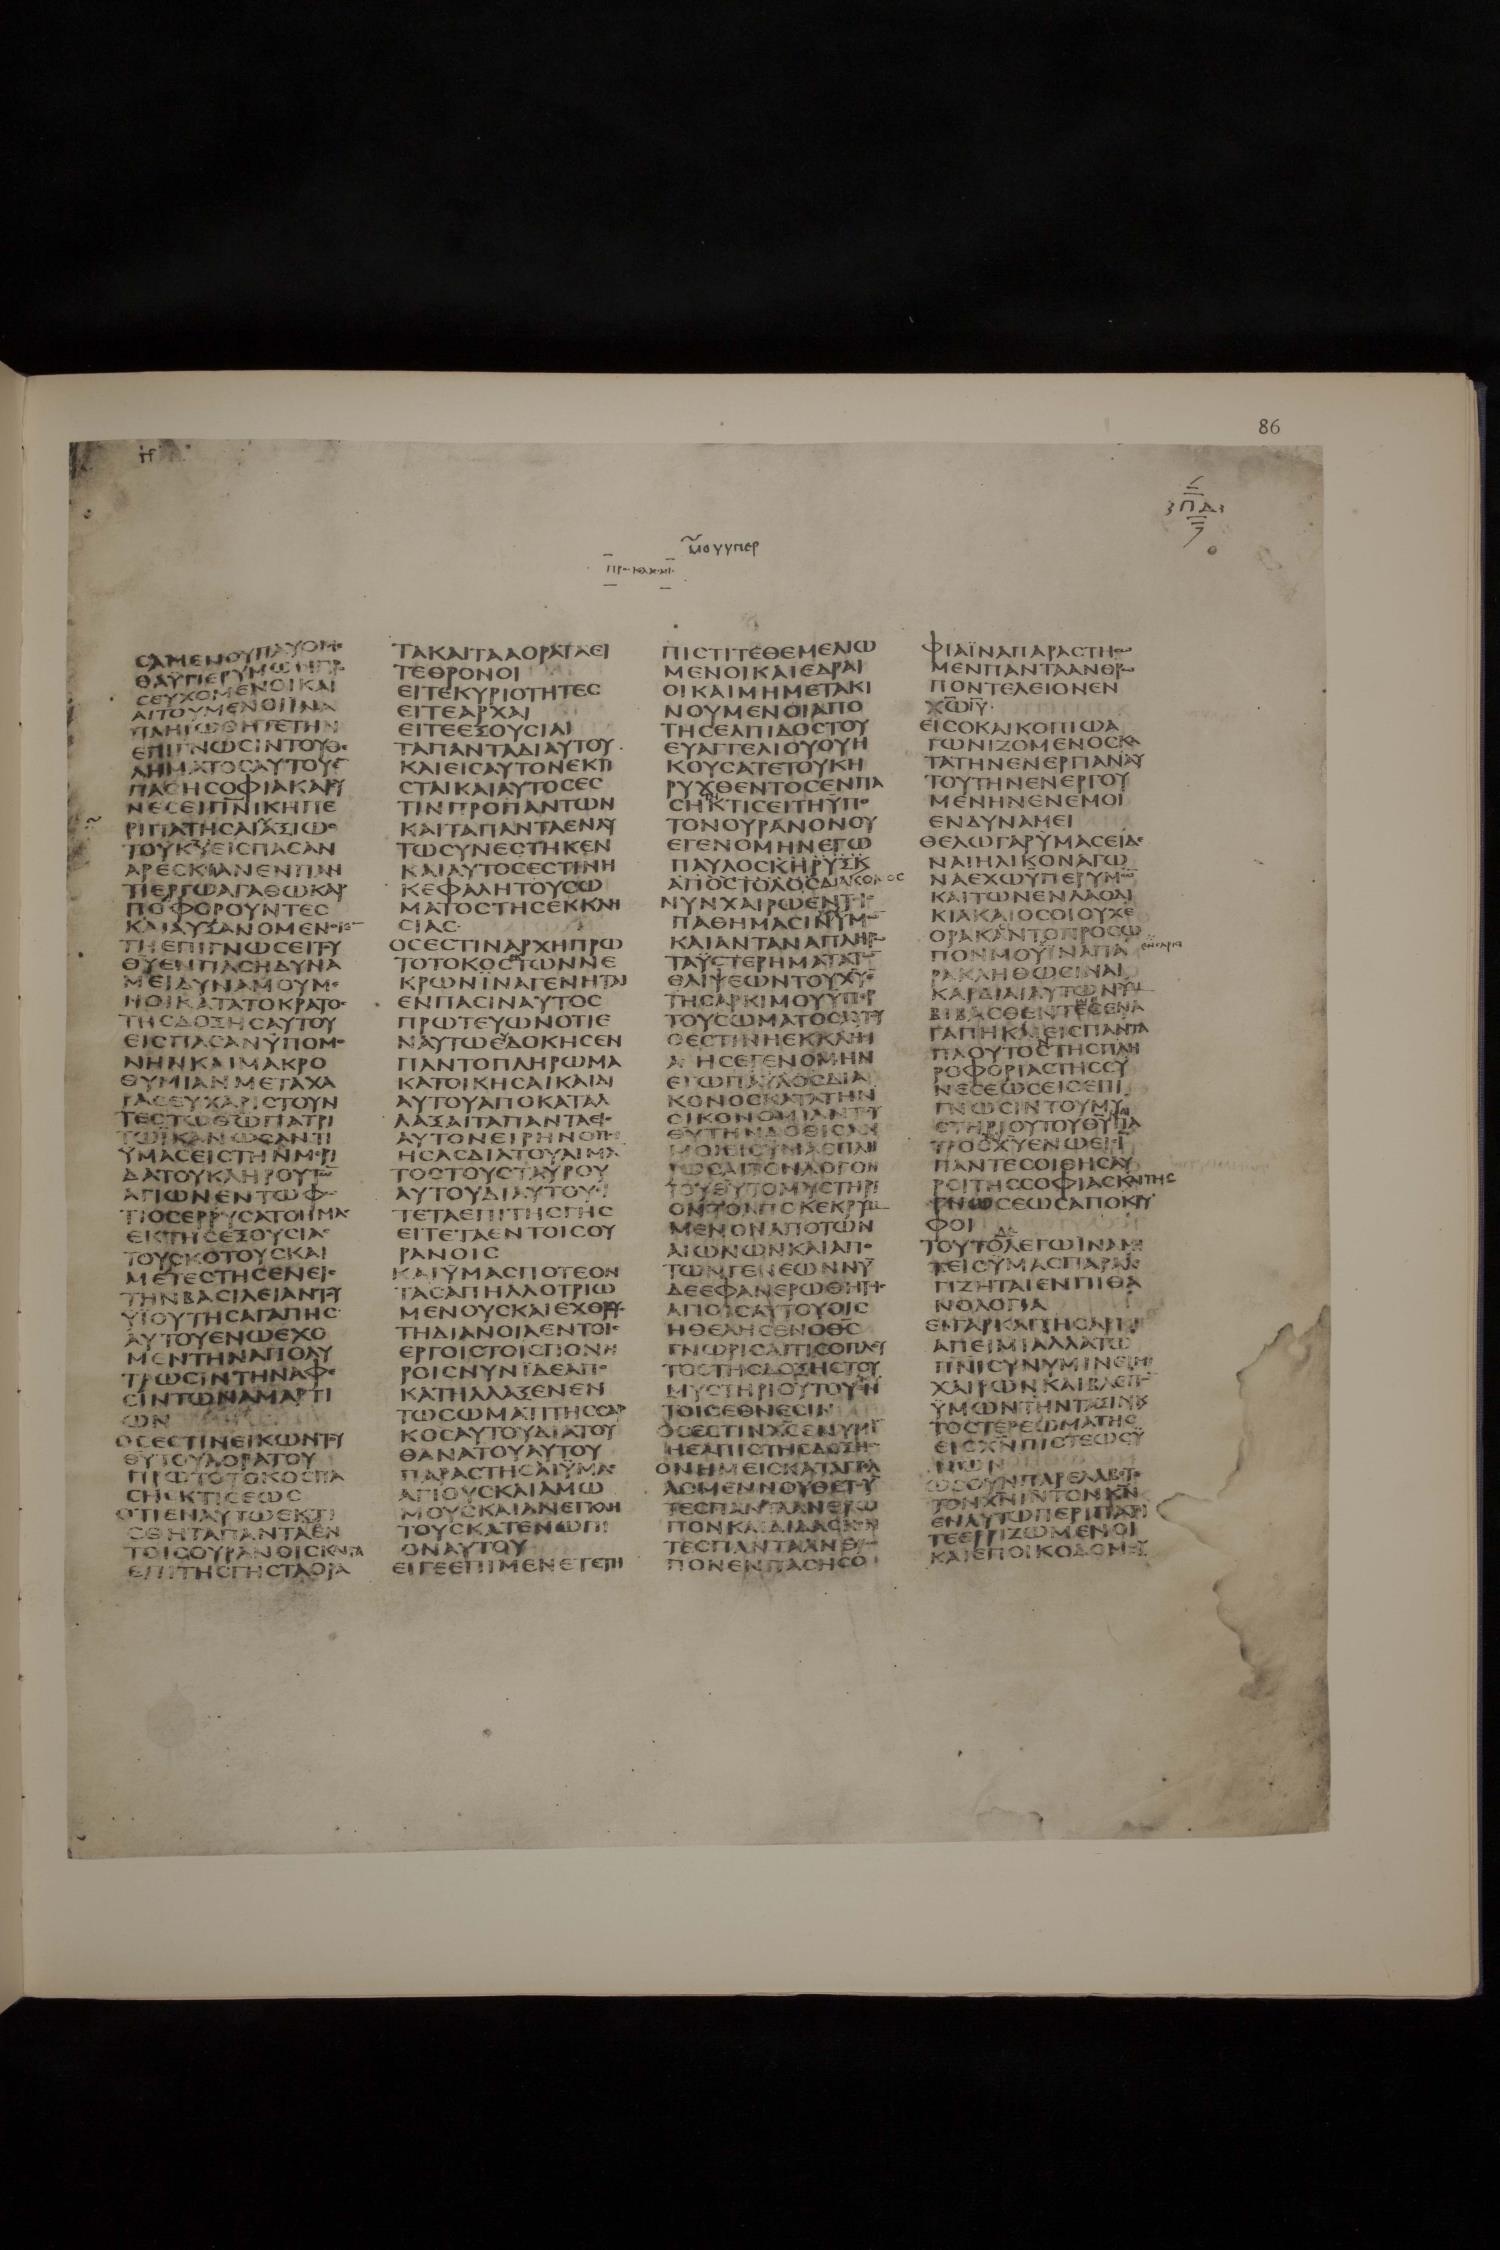 86
ΠΔ
μουυπερ
ΠΡΟΣ ΚΟΛΑΣΣΑΕΙΣ
ϹΑΜΕΝΟΥΠΑΥΟΜΕ
ΘΑΫΠΕΡΥΜΩΝΠΡΟ
ϹΕΥΧΟΜΕΝΟΙΚΑΙ
ΑΙΤΟΥΜΕΝΟΙΙΝΑ
ΠΛΗΡΩΘΗΤΕΤΗΝ
ΕΠΙΓΝΩϹΙΝΤΟΥΘΕ
ΛΗΜΑΤΟϹΑΥΤΟΥΕ
ΠΑϹΗϹΟΦΙΑΚΑΙϹΥ
ΝΕϹΕΙΠΝΙΚΗΠΕ
ΡΙΠΑΤΗϹΑΙΑΞΙΩϹ
ΤΟΥΚΥΕΙϹΠΑϹΑΝ
ΑΡΕϹΚΙΑΝΕΝΠΑΝ
ΤΙΕΡΓΩΑΓΑΘΩΚΑΡ
ΠΟΦΟΡΟΥΝΤΕϹ
ΚΑΙΑΥΞΑΝΟΜΕΝΟΙ
ΤΗΕΠΙΓΝΩϹΕΙΤΟΥ
ΘΥΕΝΠΑϹΗΔΥΝΑ
ΜΕΙΔΥΝΑΜΟΥΜΕ
ΝΟΙΚΑΤΑΤΟΚΡΑΤΟϹ
ΤΗϹΔΟΞΗϹΑΥΤΟΥ
ΕΙϹΠΑϹΑΝΫΠΟΜΟ
ΝΗΝΚΑΙΜΑΚΡΟ
ΘΥΜΙΑΝΜΕΤΑΧΑ
ΡΑϹΕΥΧΑΡΙϹΤΟΥΝ
ΤΕϹΤΩΘΩΠΑΤΡΙ
ΤΩΙΚΑΝΩϹΑΝΤΙ
ΫΜΑϹΕΙϹΤΗΝΜΕΡΙ
ΔΑΤΟΥΚΛΗΡΟΥΤΩ
ΑΓΙΩΝΕΝΤΩΦΩ
ΤΙΟϹΕΡΡΥϹΑΤΟΗΜΑϹ
ΕΚΤΗϹΕΞΟΥϹΙΑϹ
ΤΟΥϹΚΟΤΟΥϹΚΑΙ
ΜΕΤΕϹΤΗϹΕΝΕΙϹ
ΤΗΝΒΑϹΙΛΕΙΑΝΤΟΥ
ΫΙΟΥΤΗϹΑΓΑΠΗϹ
ΑΥΤΟΥΕΝΩΕΧΟ
ΜΕΝΤΗΝΑΠΟΛΥ
ΤΡΩϹΙΝΤΗΝΑΦΕ
ϹΙΝΤΩΝΑΜΑΡΤΙ
ΩΝ
ΟϹΕϹΤΙΝΕΙΚΩΝΤΟΥ
ΘΥΤΟΥΑΟΡΑΤΟΥ
ΠΡΩΤΟΤΟΚΟϹΠΑ
ϹΗϹΚΤΙϹΕΩϹ
ΟΤΙΕΝΑΥΤΩΕΚΤΙ
ϹΘΗΤΑΠΑΝΤΑΕΝ
ΤΟΙϹΟΥΡΑΝΟΙϹΚΑΙΤΑ
ΕΠΙΤΗϹΓΗϹΤΑΟΡΑ
ΤΑΚΑΙΤΑΑΟΡΑΤΑΕΙ
ΤΕΘΡΟΝΟΙ
ΕΙΤΕΚΥΡΙΟΤΗΤΕϹ
ΕΙΤΕΑΡΧΑΙ
ΕΙΤΕΕΞΟΥϹΙΑΙ
ΤΑΠΑΝΤΑΔΙΑΥΤΟΥ
ΚΑΙΕΙϹΑΥΤΟΝΕΚΤΙ
ϹΤΑΙΚΑΙΑΥΤΟϹΕϹ
ΤΙΝΠΡΟΠΑΝΤΩΝ
ΚΑΙΤΑΠΑΝΤΑΕΝΑΥ
ΤΩϹΥΝΕϹΤΗΚΕΝ
ΚΑΙΑΥΤΟϹΕϹΤΙΝΗ
ΚΕΦΑΛΗΤΟΥϹΩ
ΜΑΤΟϹΤΗϹΕΚΚΛΗ
ϹΙΑϹ
ΟϹΕϹΤΙΝΑΡΧΗΠΡΩ
ΤΟΤΟΚΟϹΤΩΝΝΕ
ΚΡΩΝΪΝΑΓΕΝΗΤΑΙ
ΕΝΠΑϹΙΝΑΥΤΟϹ
ΠΡΩΤΕΥΩΝΟΤΙΕ
ΝΑΥΤΩΕΔΟΚΗϹΕΝ
ΠΑΝΤΟΠΛΗΡΩΜΑ
ΚΑΤΟΙΚΗϹΑΙΚΑΙΔΙ
ΑΥΤΟΥΑΠΟΚΑΤΑΛ
ΛΑΞΑΙΤΑΠΑΝΤΑΕΙϹ
ΑΥΤΟΝΕΙΡΗΝΟΠΟΙ
ΗϹΑϹΔΙΑΤΟΥΑΙΜΑ
ΤΟϹΤΟΥϹΤΑΥΡΟΥ
ΑΥΤΟΥΔΙΑΥΤΟΥΕΙ
ΤΕΤΑΕΠΙΤΗϹΓΗϹ
ΕΙΤΕΤΑΕΝΤΟΙϹΟΥ
ΡΑΝΟΙϹ
ΚΑΙΫΜΑϹΠΟΤΕΟΝ
ΤΑϹΑΠΗΛΛΟΤΡΙΩ
ΜΕΝΟΥϹΚΑΙΕΧΘΡΟΥϹ
ΤΗΔΙΑΝΟΙΑΕΝΤΟΙϹ
ΕΡΓΟΙϹΤΟΙϹΠΟΝΗ
ΡΟΙϹΝΥΝΪΔΕΑΠΟ
ΚΑΤΗΛΛΑΞΕΝΕΝ
ΤΩϹΩΜΑΤΙΤΗϹϹΑΡ
ΚΟϹΑΥΤΟΥΔΙΑΤΟΥ
ΘΑΝΑΤΟΥΑΥΤΟΥ
ΠΑΡΑϹΤΗϹΑΙΫΜΑϹ
ΑΓΙΟΥϹΚΑΙΑΜΩ
ΜΟΥϹΚΑΙΑΝΕΓΚΛΗ
ΤΟΥϹΚΑΤΕΝΩΠΙ
ΟΝΑΥΤΟΥ
ΕΙΓΕΕΠΙΜΕΝΕΤΕΤΗ
ΠΙϹΤΙΤΕΘΕΜΕΛΙΩ
ΜΕΝΟΙΚΑΙΕΔΡΑΙ
ΟΙΚΑΙΜΗΜΕΤΑΚΙ
ΝΟΥΜΕΝΟΙΑΠΟ
ΤΗϹΕΛΠΙΔΟϹΤΟΥ
ΕΥΑΓΓΕΛΙΟΥΟΥΗ
ΚΟΥϹΑΤΕΤΟΥΚΗ
ΡΥΧΘΕΝΤΟϹΕΝΠΑ
ϹΗΚΤΙϹΕΙΤΗΫΠΟ
ΤΟΝΟΥΡΑΝΟΝΟΥ
ΕΓΕΝΟΜΗΝΕΓΩ
ΠΑΥΛΟϹΚΗΡΥΞΚ
ΑΠΟϹΤΟΛΟϹΔΙΑΚΟΝΟϹ
ΝΥΝΧΑΙΡΩΕΝΤΟΙ
ΠΑΘΗΜΑϹΙΝΫΜΩ
ΚΑΙΑΝΤΑΝΑΠΛΗΡΩ
ΤΑΫϹΤΕΡΗΜΑΤΑΤΩ
ΘΛΙΨΕΩΝΤΟΥΧΥΕ
ΤΗϹΑΡΚΙΜΟΥΫΠΕΡ
ΤΟΥϹΩΜΑΤΟϹΑΥΤΟΥ
ΟΕϹΤΙΝΗΕΚΚΛΗϹΙ
ΑΗϹΕΓΕΝΟΜΗΝ
ΕΓΩΠΑΥΛΟϹΔΙΑ
ΚΟΝΟϹΚΑΤΑΤΗΝ
ΟΙΚΟΝΟΜΙΑΝΤΟΥ
ΘΥΤΗΝΔΟΘΙϹΑΝ
ΜΟΙΕΙϹΫΜΑϹΠΛΗ
ΡΩϹΑΙΤΟΝΛΟΓΟΝ
ΤΟΥΘΥΤΟΜΥϹΤΗΡΙ
ΟΝΤΟΑΠΟΚΕΚΡΥΜ
ΜΕΝΟΝΑΠΟΤΩΝ
ΑΙΩΝΩΝΚΑΙΑΠΟ
ΤΩΝΓΕΝΕΩΝΝΥΝ
ΔΕΕΦΑΝΕΡΩΘΗΤΟΙϹ
ΑΓΙΟΙϹΑΥΤΟΥΟΙϹ
ΗΘΕΛΗϹΕΝΟΘϹ
ΓΝΩΡΙϹΑΙΤΙϹΟΠΛΟΥ
ΤΟϹΤΗϹΔΟΞΗϹΤΟΥ
ΜΥϹΤΗΡΙΟΥΤΟΥΕΝ
ΤΟΙϹΕΘΝΕϹΙΝ
ΟϹΕϹΤΙΝΧϹΕΝΥΜΙ
ΗΕΛΠΙϹΤΗϹΔΟΞΗϹ
ΟΝΗΜΕΙϹΚΑΤΑΓΓΕΛ
ΛΟΜΕΝΝΟΥΘΕΤΟΥ
ΤΕϹΠΑΝΤΑΑΝΘΡΩ
ΠΟΝΚΑΙΔΙΔΑϹΚΟΝ
ΤΕϹΠΑΝΤΑΑΝΘΡΩ
ΠΟΝΕΝΠΑϹΗϹΟ
ΦΙΑΪΝΑΠΑΡΑϹΤΗϹΩ
ΜΕΝΠΑΝΤΑΑΝΘΡΩ
ΠΟΝΤΕΛΕΙΟΝΕΝ
ΧΩΙΥ
ΕΙϹΟΚΑΙΚΟΠΙΩΑ
ΓΩΝΙΖΟΜΕΝΟϹΚΑ
ΤΑΤΗΝΕΝΕΡΓΙΑΝΑΥ
ΤΟΥΤΗΝΕΝΕΡΓΟΥ
ΜΕΝΗΝΕΝΕΜΟΙ
ΕΝΔΥΝΑΜΕΙ
ΘΕΛΩΓΑΡΫΜΑϹΕΙΔΕ
ΝΑΙΗΛΙΚΟΝΑΓΩ
ΝΑΕΧΩΫΠΕΡΥΜΩ
ΚΑΙΤΩΝΕΝΛΑΟΔΙ
ΚΙΑΚΑΙΟϹΟΙΟΥΧΕ
ΟΡΑΚΑΝΤΟΠΡΟϹΩ
ΠΟΝΜΟΥΪΝΑΠΑ ΕΝϹΑΡΚΙ
ΡΑΚΛΗΘΩϹΙΝΑΙ
ΚΑΡΔΙΑΙΑΥΤΩΝϹΥΜ
ΒΙΒΑϹΘΕΝΤΕϹΕΝΑ
ΓΑΠΗΚΑΙΕΙϹΠΑΝΤΑ
ΠΛΟΥΤΟϹΤΗϹΠΛΗ
ΡΟΦΟΡΙΑϹΤΗϹϹΥ
ΝΕϹΕΩϹΕΙϹΕΠΙ
ΓΝΩϹΙΝΤΟΥΜΥ
ϹΤΗΡΙΟΥΤΟΥΘΥΠΑ
ΤΡΟϹΧΥΕΝΩΕΙϹΙ
ΠΑΝΤΕϹΟΙΘΗϹΑΥ
ΡΟΙΤΗϹϹΟΦΙΑϹΚΑΙΤΗϹ
ΓΝΩϹΕΩϹΑΠΟΚΡΥ
ΦΟΙ
ΤΟΥΤΟΔΕΛΕΓΩΪΝΑΜΗ
ΔΕΙϹΫΜΑϹΠΑΡΑΛΟ
ΓΙΖΗΤΑΙΕΝΠΙΘΑ
ΝΟΛΟΓΙΑ
ΕΙΓΑΡΚΑΙΤΗϹΑΡΚΙ
ΑΠΕΙΜΙΑΛΛΑΤΩ
ΠΝΙϹΥΝΥΜΙΝΕΙΜΙ
ΧΑΙΡΩΝΚΑΙΒΛΕΠΩ
ΫΜΩΝΤΗΝΤΑΞΙΝΚΑΙ
ΤΟϹΤΕΡΕΩΜΑΤΗϹ
ΕΙϹΧΝΠΙϹΤΕΩϹΫ
ΜΩΝ
ΩϹΟΥΝΠΑΡΕΛΑΒΕΤΕ
ΤΟΝΧΝΙΝΤΟΝΚΝ
ΕΝΑΥΤΩΠΕΡΙΠΑΤΕΙ
ΤΕΕΡΡΙΖΩΜΕΝΟΙ
ΚΑΙΕΠΟΙΚΟΔΟΜΟΥ